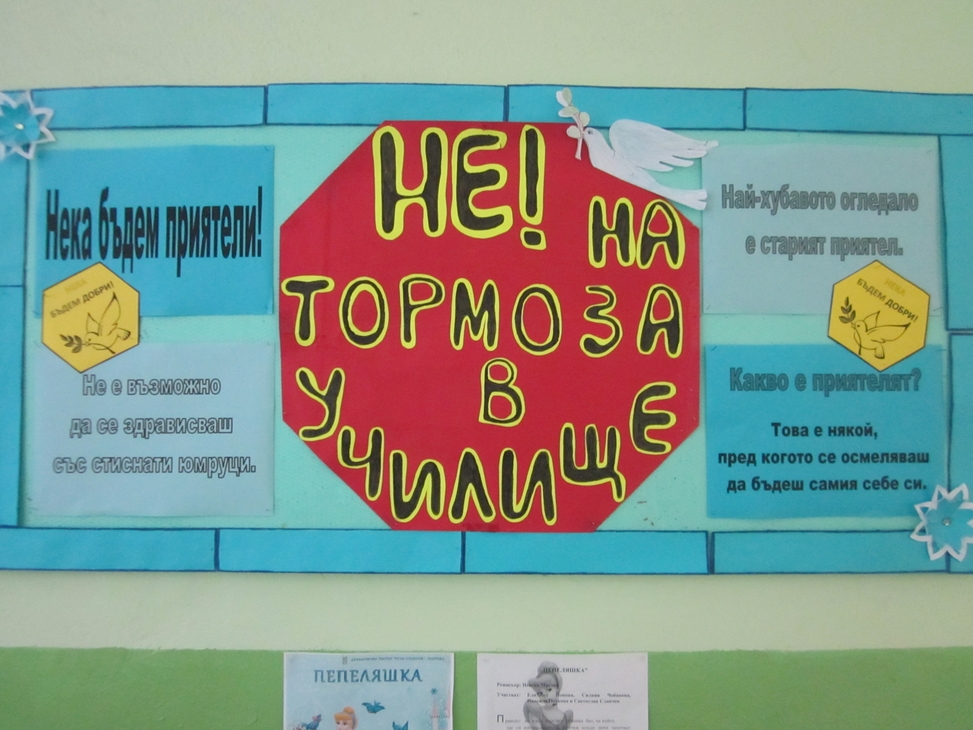 Нека бъдем приятели!
НЕКА
БЪДЕМ ДОБРИ!
Не е възможно
да се здрависваш
със стиснати юмруци.
НЕ!
НА
ТОРМОЗА
В
УЧИЛИЩЕ
Най-хубавото огледало
е старият приятел.
НЕКА
БЪДЕМ ДОБРИ!
Какво е приятелят?
Това е някой,
пред когото се осмеляваш
да бъдеш самия себе си.
ПЕПЕЛЯШКА
"ПЕПЕЛЯШКА"